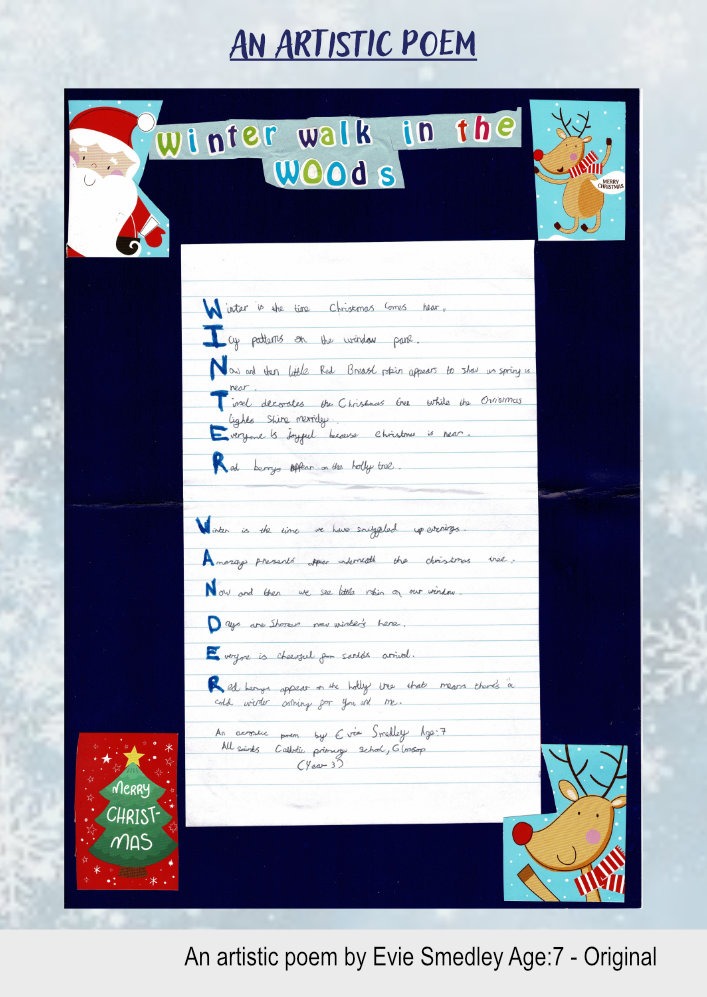 AN ARTISTIC POEM
Winter walk in the
WOOds
MERRY
CHRISTMAS
Winter is the time Christmas comes near.
Icy patterns on the window pane.
Now and then little Red Breast robin appears to show us spring is
near.
Tinsel decorates the Christmas tree while the Christmas
lights shine merrily.
Everyone is joyful because Christmas is near.
Red berrys appear on the holly tree.
Winter is the time we have snuggled up evenings.
Amazing presents appear underneath the christmas tree.
Now and then we see little robin on our window.
Days are Shorter now winter's here.
Everyone is cheerful for santa's arrival.
Red berrys appear on the holly tree that means there's a
cold winter coming for you and me.
An acrostic poem by Evie Smedley Age:7
All saints Catholic primary school, Glossop
(Year 3)
Merry
CHRIST-
MAS
An artistic poem by Evie Smedley Age:7 - Original